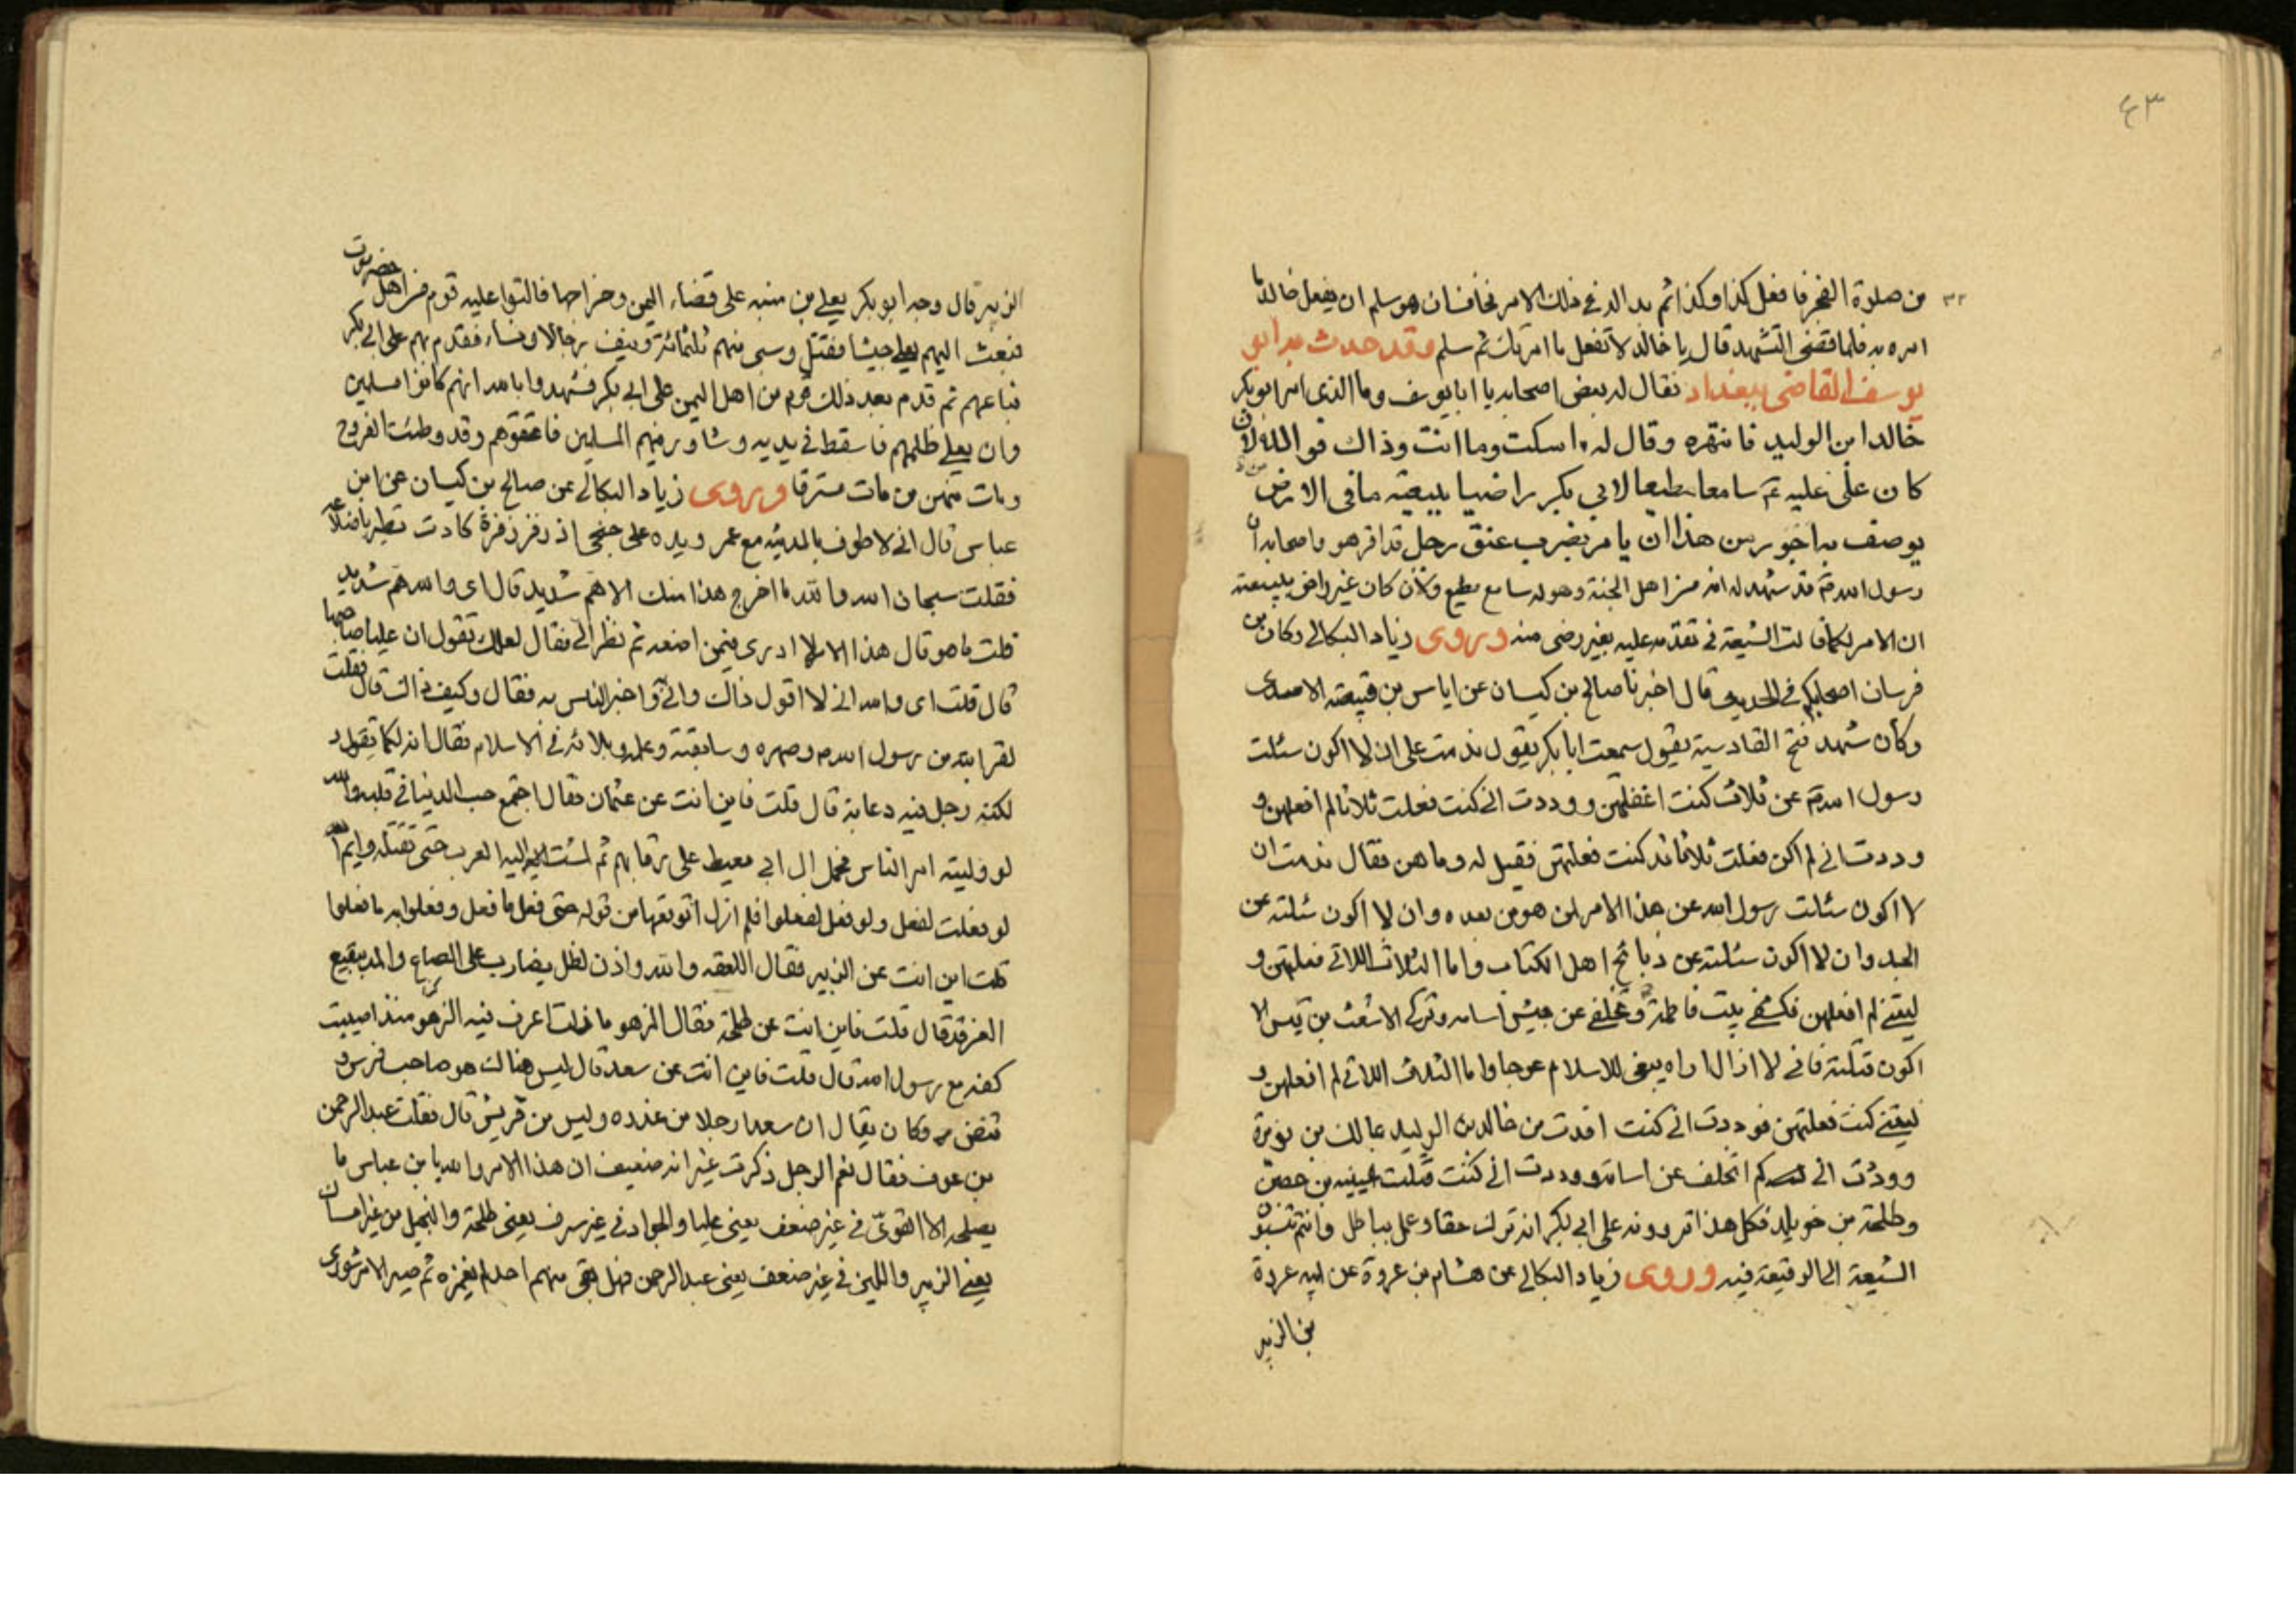 ٤٣
٣٢
من صلوة الفجر فافعل كذا وكذا ثم بدا له فى ذلك الامر فخاف ان هو سلم ان يفعل خالد ما
امره به فلما قضى التشهد قال يا خالد لا تفعل ما امرتك ثم سلم وقد حدث به ابو
يوسف القاضى ببغداد فقال له بعض اصحابه يا ابا يوسف وما الذى امر ابو بكر
خالد ابن الوليد فانتهره وقال له اسكت وما انت وذاك فوالله لان
كان على عليه سامعا مطيعا لابى بكر راضيا ببيعته ما فى الارض
يوصف به اجور من هذا ان يامر بضرب عنق رجل قد اقر هو واصحابه ان
رسول الله قد شهد له انه من اهل الجنة وهو له سامع مطيع ولان كان غير راض ببيعته
ان الامر لكما قالت الشيعة فى تقدمه عليه بغير رضى منه وروى زياد البكالى وكان من
فرسان اصحابكم فى الحديث قال اخبرنا صالح بن كيسان عن اياس بن قبيصة الاسدى
وكان شهد فتح القادسية يقول سمعت ابا بكر يقول ندمت على ان لا اكون سئلت
رسول الله عن ثلاث كنت اغفلتهن ووددت انى كنت فعلت ثلاثا لم افعلهن و
وددت انى لم اكن فعلت ثلاثا قد كنت فعلتهن فقيل له وما هن فقال ندمت ان
لا اكون سئلت رسول الله عن هذا الامر لمن هو من بعده وان لا اكون سئلته عن
الجد وان لا اكون سئلته عن ذبائح اهل الكتاب واما الثلاث اللاتى فعلتهن و
ليتنى لم افعلهن فكشفى بيت فاطمة وتخلفى عن جيش اسامه وتركى الاشعث بن قيس الا
اكون قتلته فانى لا ازال اراه يبغى للاسلام عوجا واما الثلاث اللاتى لم افعلهن و
ليتنى كنت فعلتهن فوددت انى كنت اقدت من خالد بن الوليد بمالك بن نويرة
ووددت انى لم اتخلف عن اسامة ووددت انى كنت قتلت عيينه بن حصين
وطلحة بن خويلد فكل هذا تروونه على ابى بكر انه ترك حقا وعمل بباطل وانتم تنسبون
الشيعة الى الوقيعة فيه وروى زياد البكالى عن هشام بن عروة عن ابيه عروة
بن الزبير
الزبير قال وجه ابو بكر يعلى بن منبه على قضاء اليمن وخراجها فالتوا عليه قوم من اهل حضرموت
فبعث اليهم يعلى جيشا فقتل وسبى منهم ثلثمائة ونيف رجالا ونساء فقدم بهم على ابى بكر
فباعهم ثم قدم بعد ذلك قوم من اهل اليمن على ابى بكر فشهدوا بالله انهم كانوا مسلمين
وان يعلى ظلمهم فاسقط فى يديه وشاور فيهم المسلمين فاعتقوهم وقد وطئت الفروج
ومات منهن من مات مسترقا وروى زياد البكالى عن صالح بن كيسان عن ابن
عباس قال انى لاطوف بالمدينه مع عمر ويده على جنحى اذ زفر زفرة كادت تطير باضلاعه
فقلت سبحان الله والله ما اخرج هذا منك الا هم شديد قال اى والله هم شديد
قلت ما هو قال هذا الامر لا ادرى فيمن اضعه ثم نظر الى فقال لعلك تقول ان عليا صاحبها
قال قلت اى والله انى لا اقول ذاك وانى واخبر الناس به فقال وكيف ذاك قال فقلت
لقرابته من رسول الله وصهره وسابقته وعلمه وبلائه فى الاسلام فقال انه لكما تقول و
لكنه رجل فيه دعابة قال قلت فاين انت عن عثمان فقال اجتمع حب الدنيا فى قلبه والله
لو وليته امر الناس لحمل ال ابى معيط على رقابهم ثم لمشت اليه العرب حتى تقتله وايم الله
لو فعلت لفعل ولو فعل لفعلوا فلم ازل اتوقعها من قوله حتى فعل ما فعل وفعلوا به ما فعلوا
قلت اين انت عن الزبير فقال اللعقه والله واذن لظل يضارب على الصاع والمد ببقيع
الغرقد قال قلت فاين انت عن طلحة فقال الزهو ما زلت اعرف فيه الزهو منذ اصيبت
كفه مع رسول الله قال قلت فاين انت عن سعد قال ليس هناك هو صاحب فرس و
قنص وكان يقال ان سعدا رجلا من عذره وليس من قريش قال فقلت عبد الرحمن
بن عوف فقال نعم الرجل ذكرت غير انه ضعيف ان هذا الامر والله يا بن عباس ما
يصلحه الا القوى فى غير ضعف يعنى عليا والجواد فى غير سرف يعنى طلحة والبخيل من غير امساك
يعنى الزبير واللين فى غير ضعف يعنى عبد الرحمن فهل بقى منهم احد لم يغمزه ثم صير الامر شورى